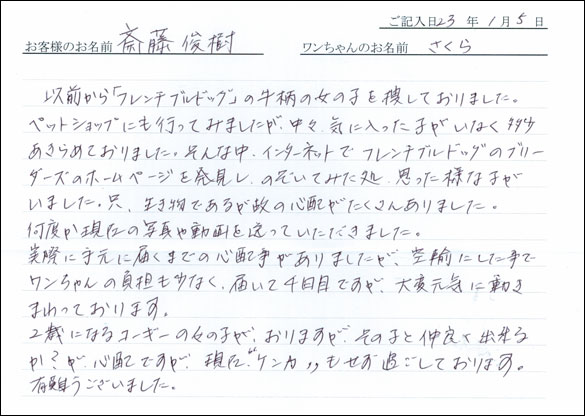 ご記入日23年1月5日
お客様のお名前 斎藤俊樹 ワンちゃんのお名前 さくら
以前から「フレンチブルドッグ」の牛柄の女の子を捜しておりました。
ペットショップにも行ってみましたが、中々、気に入った子がいなく多少
あきらめておりました。そんな中、インターネットでフレンチブルドッグのブリー
ダーズのホームページを発見し、のぞいてみた処、思った様な子が
いました。只、生き物であるが故の心配がたくさんありました。
何度か現在の写真や動画を送っていただきました。
実際に手元に届くまでの心配事がありましたが、空輸にした事で
ワンちゃんの負担も少なく、届いて4日目ですが、大変元気に動き
まわっております。
2歳になるコーギーの女の子が、おりますが、その子と仲良く出来る
か?が、心配ですが、現在、“ケンカ〟もせず過ごしております。
有難うございました。